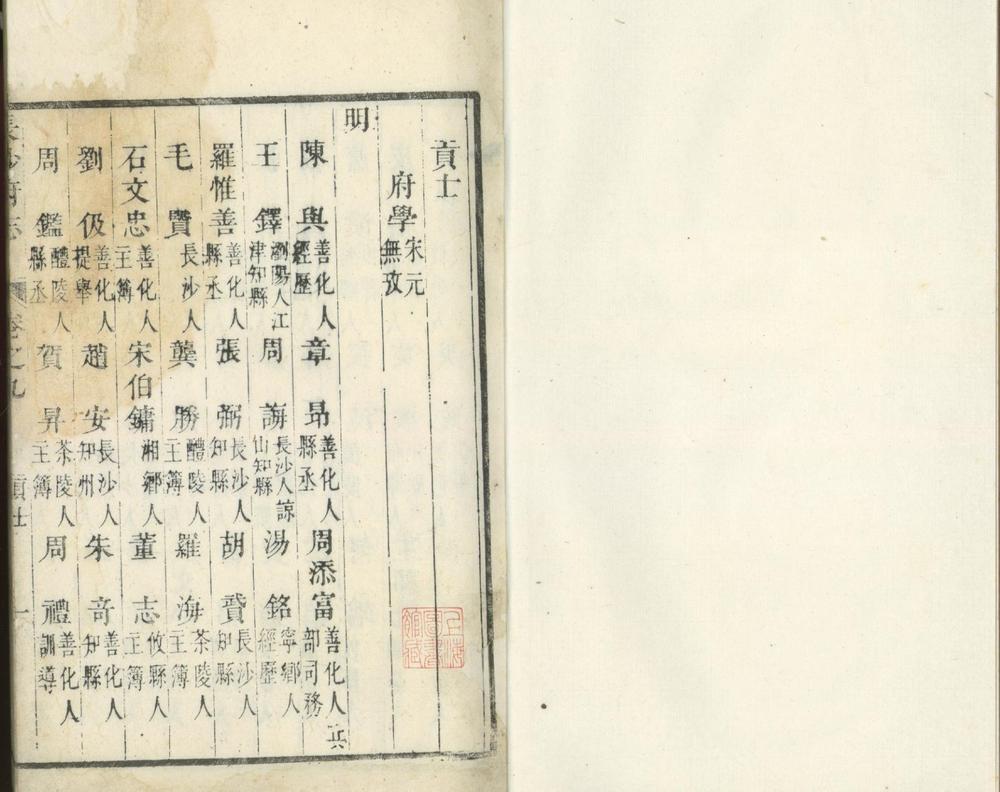 貢士
府學 宋元無攷
明
陳與 善化人經歷 章昻 善化人縣丞 周添富 善化人兵部司務
王鐸 瀏陽人江津知縣 周誨 長沙人諒山知縣 湯銘 寧鄉人經歷
羅惟善 善化人縣丞 張弼 長沙人知縣 胡賫 長沙人知縣
毛贒 長沙人 龔勝 醴陵人主簿 羅海 茶陵人主簿
石文忠 善化人主簿 宋伯鏞 湘鄉人 董志 攸縣人主簿
劉伋 善化人提舉 趙安 長沙人知州 朱竒 善化人知縣
周鑑 醴陵人縣丞 賀昇 茶陵人主簿 周禮 善化人訓導
長沙府志 卷之九 貢士 一
上海圖書館藏